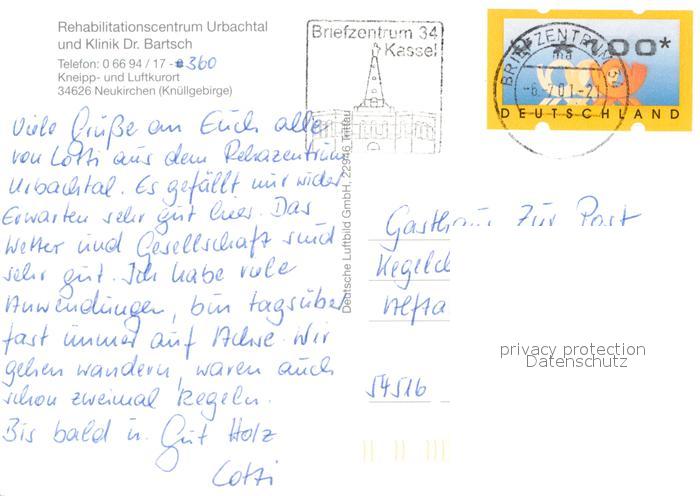 Rehabilitationscentrum Urbachtal
und Klinik Dr. Bartsch
Telefon: 0 66 94 / 17 - 360
Kneipp- und Luftkurort
34626 Neukirchen (Knüllgebirge)
Briefzentrum 34
Kassel
BRIEFZENTRUM 34
ma
-6.-7.01-21
*1,00*
DEUTSCHLAND
Viele Grüße an Euch alle
von Lotti aus dem Rehazentrum
Urbachtal. Es gefällt mir wider
Erwarten sehr gut hier. Das
Wetter und Gesellschaft sind
sehr gut. Ich habe viele
Anwendungen, bin tagsüber
fast immer auf Achse. Wir
gehen wandern, waren auch
schon zweimal kegeln.
Bis bald u. Gut Holz
Lotti
Deutsche Luftbild GmbH, 22946 Trittau
Gasthaus Zur Post
Kegelc
54516
privacy protection
Datenschutz